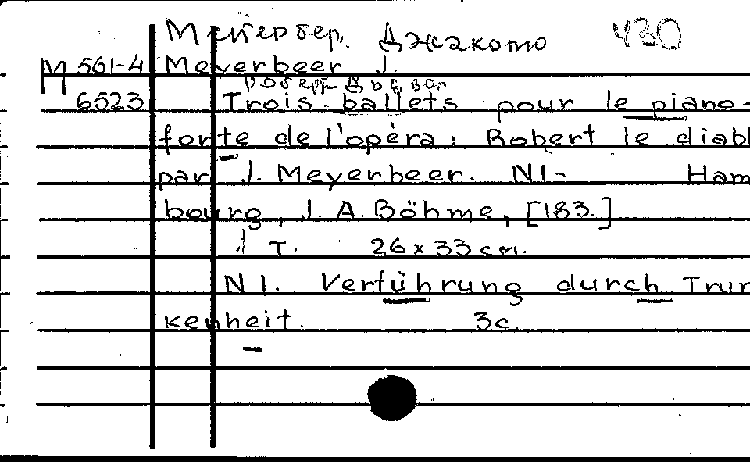 Мейербер, Джакомо 430
М 561-4 Meyerbeer J.
Роберт Дьявол
6523 Trois ballets pour le piano-
forte de l'opéra: Robert le diabl
par J. Meyerbeer. N1- Ham
bourg, J. A. Böhme, [183.]
1 т. 26 x 33 cm.
N1. Verführung durch Trun
kenheit 3 c.